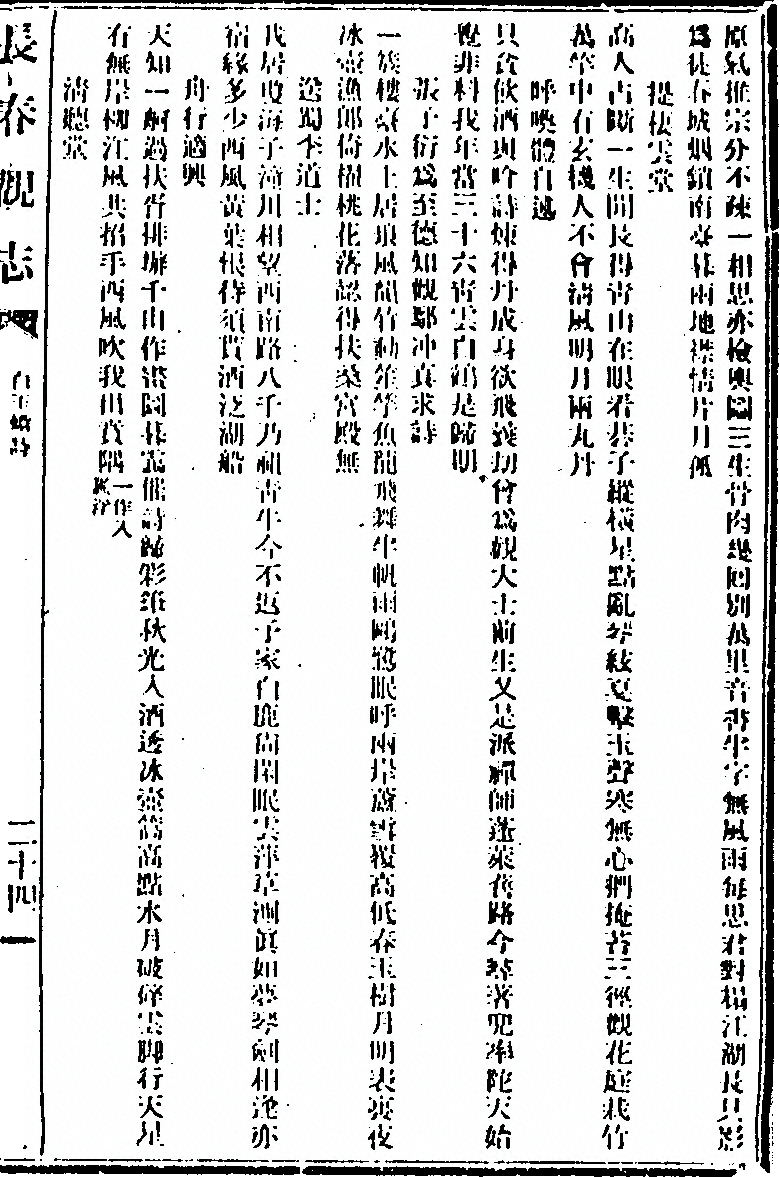 原氣推宗分不疎一相思亦檢輿圖三生骨肉幾回別萬里音書半字無風雨每思君對榻江湖長只影
爲徒春城烟鎖南臺暮兩地襟情片月孤
提棲雲堂
高人占斷一生閒長得靑山在眼看碁子縱橫星點亂琴絃戛擊玉聲寒無心們掩蒼三徑觀花庭栽竹
萬竿中有玄機人不會淸風明月兩丸丹
呼喚體自述
只貪飲酒與吟詩煉得丹成身欲飛義刧曾爲觀大士前生又是派禪師蓬萊舊路今尋著兜率陀天始
覺非料我年當三十六靑雲白鶴是歸期
張子衍爲至德知觀鄢冲眞求詩
一簇樓臺水上居琅風韻竹動笙竽魚龍飛舞半帆雨鷗鷺眠呼兩岸蘆雪覆高低春玉樹月明表裏夜
冰壺漁郎倚櫂桃花落認得扶桑宮殿無
送蜀李道士
我居瓊海子潼川相望西南路八千乃祖靑牛今不返子家白鹿尙閑眠雲萍草澗眞如夢琴劍相逢亦
宿緣多少西風黃葉恨待須買酒泛湖船
舟行適興
天知一舸過扶胥排辦千山作畫圖暮靄催詩歸彩筆秋光入酒透冰壺篙高點水月破碎雲脚行天星
有無岸柳江風共招手西風吹我出賁隅一作入
淸聽堂
長春觀志
白玉蟾詩
二十四